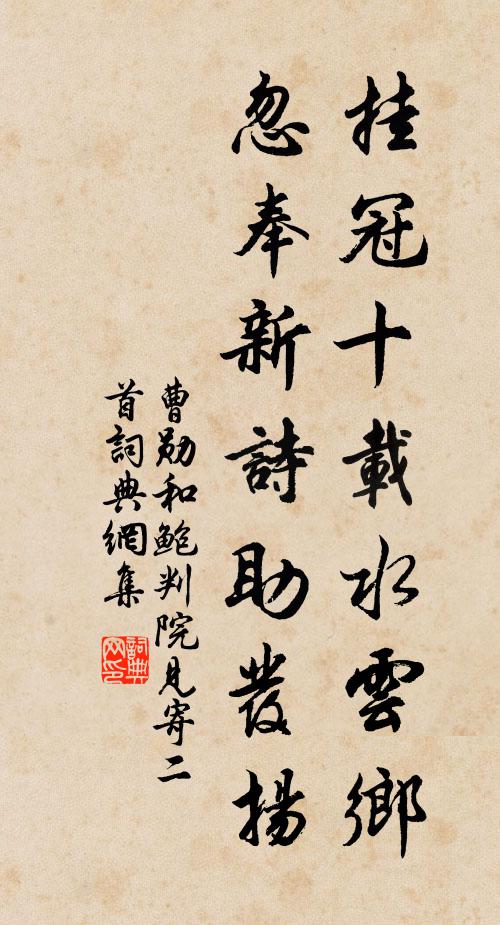 挂冠十載水雲鄉
忽奉新詩助發揚
曹勛和鮑判院見寄二
首詞典網集
詞典
网印